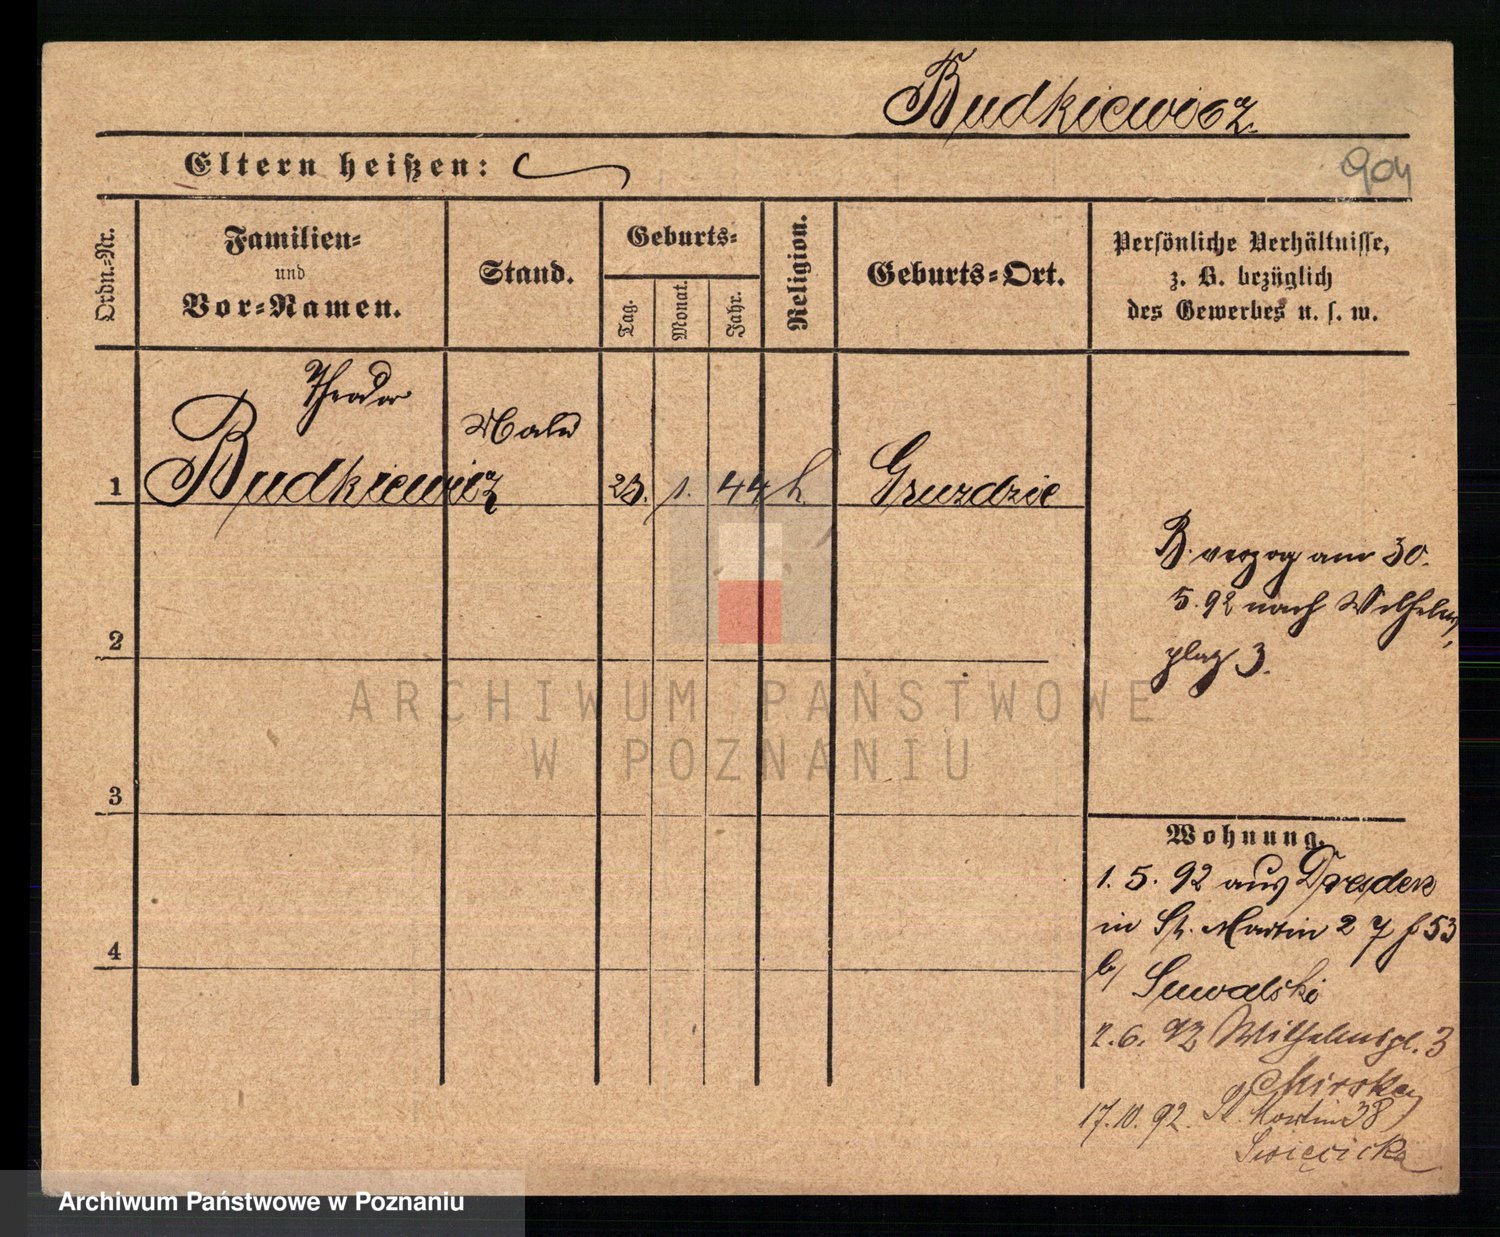 Budkiewicz.
Eltern heißen:
904
Ordn.-Nr.
Familien-
und
Vor-Namen.
Stand.
Geburts-
Tag.
Monat.
Jahr.
Religion.
Geburts-Ort.
Persönliche Verhältnisse,
z. B. bezüglich
des Gewerbes u. s. w.
Theodor
1 Budkiewicz 23. 1. 44 k. Gruzdzie
B. verzog am 30.
5. 92 nach Wilhelms
platz 3.
2
ARCHIWUM PAŃSTWOWE
W POZNANIU
3
Wohnung.
1. 5. 92 aus Dresden
in St. Martin 27 53
b/ Suwalski
2. 6. 92 Wilhelmspl. 3
17. 10. 92. St. Martin 38
Swięcicka
4
Archiwum Państwowe w Poznaniu